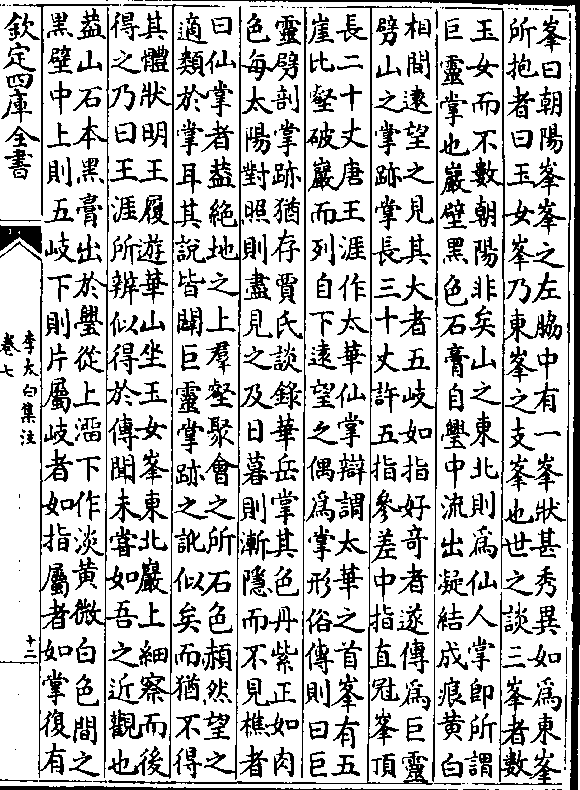 峯曰朝陽峯峯之左脇中有一峯狀甚秀異如爲東峯
所抱者曰玉女峯乃東峯之支峯也世之談三峯者數
玉女而不數朝陽非矣山之東北則爲仙人掌即所謂
巨靈掌也巖壁黑色石膏自璺中流出凝結成痕黄白
相間遠望之見其大者五岐如指好奇者遂傳爲巨靈
劈山之掌跡掌長三十丈許五指參差中指直冠峯頂
長二十丈唐王涯作太華仙掌辯謂太華之首峯有五
崖比壑破巖而列自下遠望之偶爲掌形俗傳則曰巨
靈劈剖掌跡猶存賈氏談錄華岳掌其色丹紫正如肉
色每太陽對照則盡見之及日暮則漸隱而不見樵者
曰仙掌者葢絶地之上羣壑聚會之所石色頳然望之
適類於掌耳其說皆闢巨靈掌跡之訛似矣而猶不得
其體狀明王履遊華山坐玉女峯東北巖上細察而後
得之乃曰王涯所辨似得於傳聞未嘗如吾之近觀也
葢山石本黑膏出於璺從上溜下作淡黄微白色間之
黑壁中上則五岐下則片屬岐者如指屬者如掌復有
欽定四庫全書
李太白集注
卷七
十二